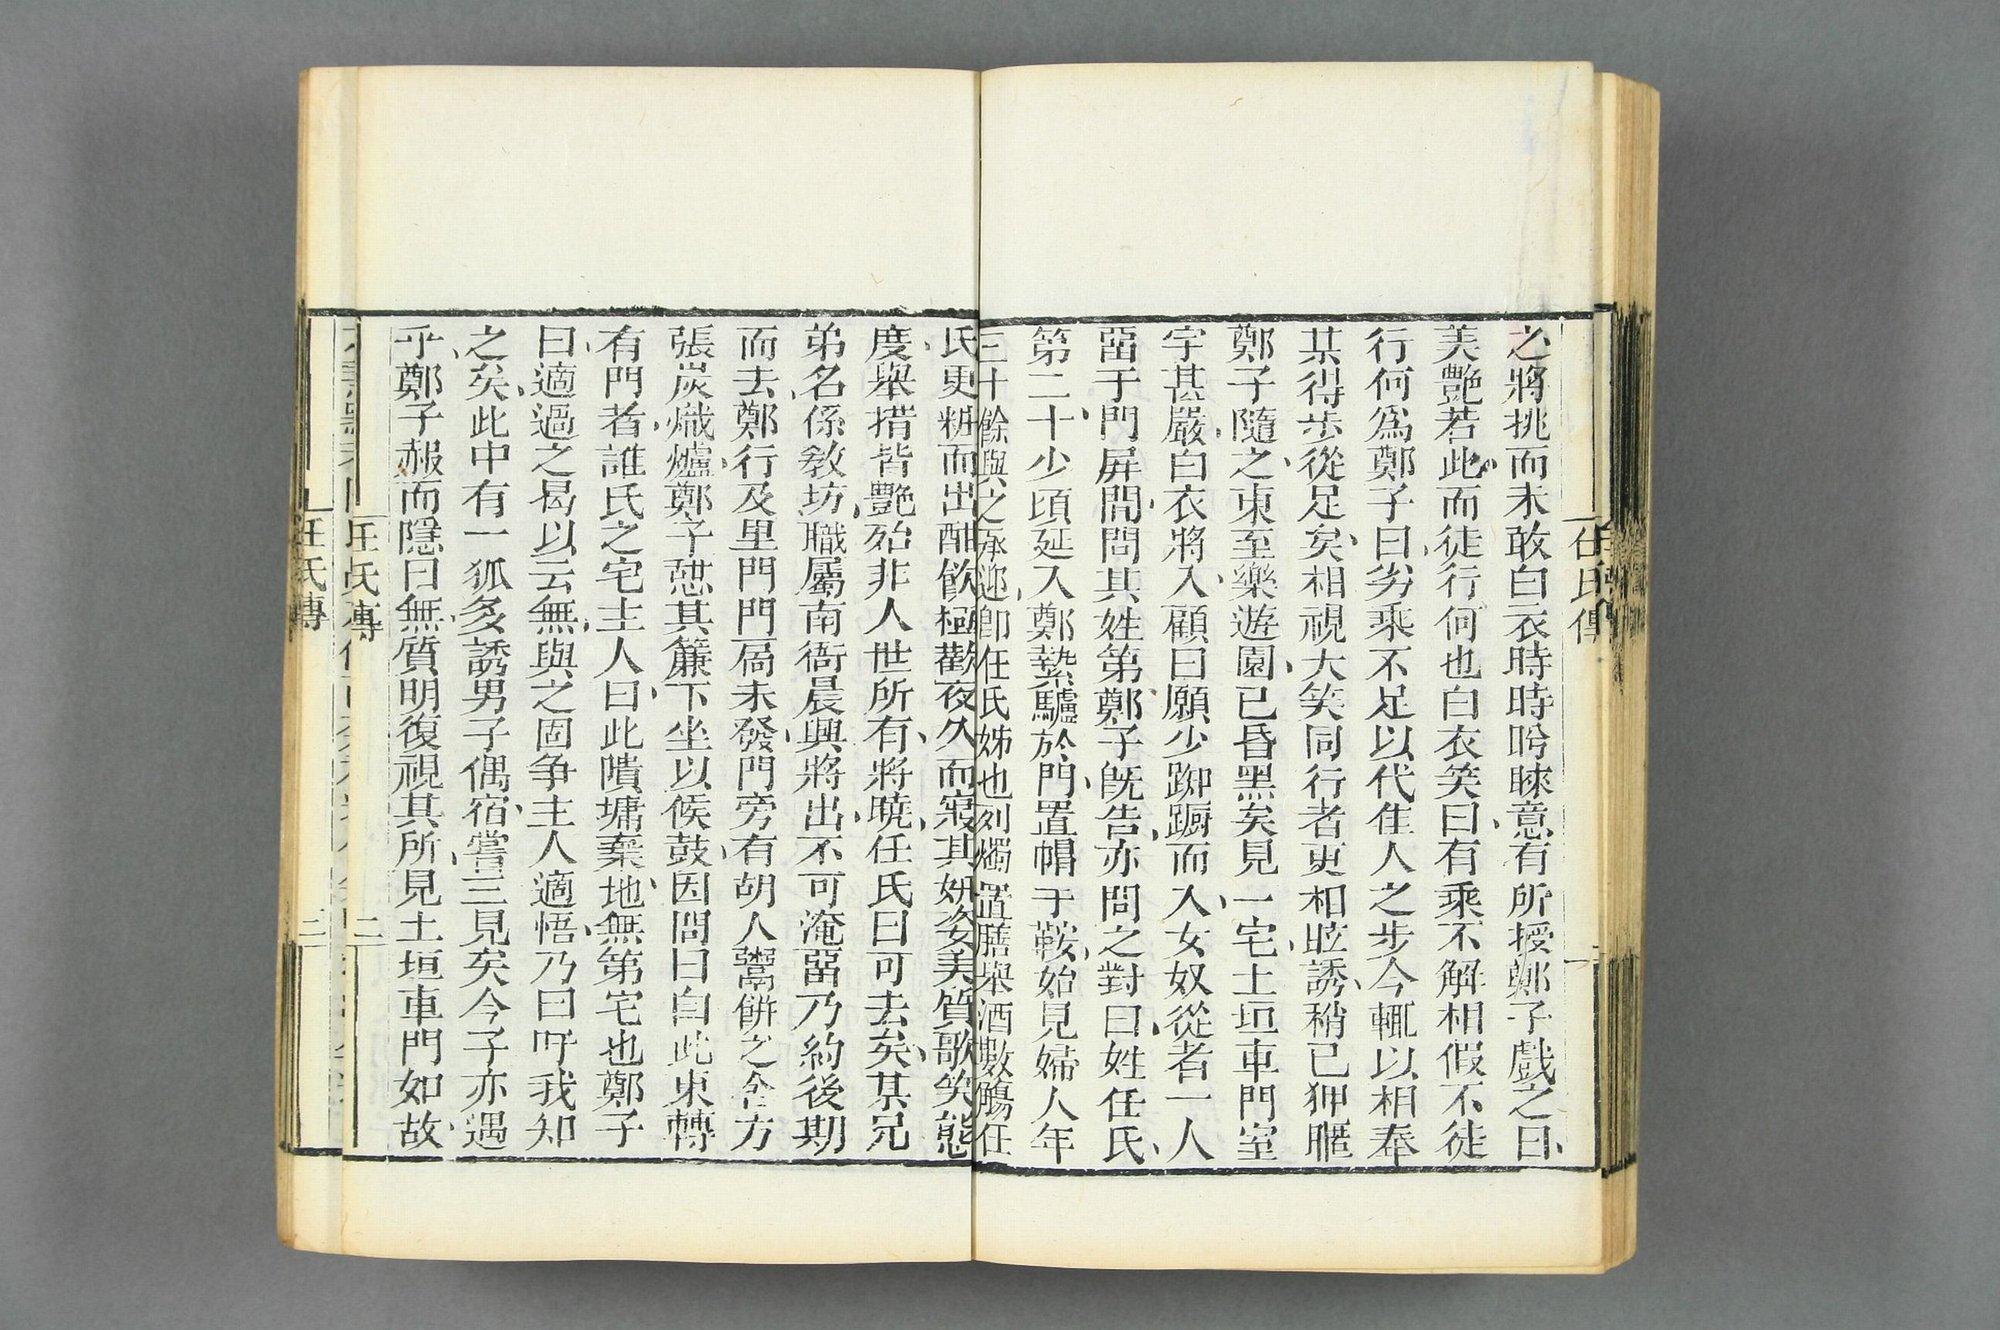 任氏傳
之將挑而未敢白衣時時盻睞意有所授鄭子戲之曰
美艷若此而徒行何也白衣笑曰有乘不解相假不徒
行何爲鄭子曰劣乘不足以代隹人之步今輒以相奉
某得步從足矣相視大笑同行者更相眩誘稍已狎暱
鄭子隨之東至樂遊園已昏黑矣見一宅土垣車門室
宇甚嚴白衣將入顧曰願少踟躕而入女奴從者一人
留于門屏間問其姓第鄭子旣告亦問之對曰姓任氏
第二十少頃延入鄭縶驢於門置帽于鞍始見婦人年
三十餘與之承迎卽任氏姊也列燭置膳舉酒數觴任
氏更粧而出酣飮極歡夜久而寢其妍姿美質歌笑態
度舉措皆艷殆非人世所有將曉任氏曰可去矣某兄
弟名係敎坊職屬南衙晨興將出不可淹留乃約後期
而去鄭行及里門門扃未發門旁有胡人鬻餅之舍方
張炭熾爐鄭子憇其簾下坐以候鼓因問曰自此東轉
有門者誰氏之宅主人曰此隤墉棄地無第宅也鄭子
曰適過之曷以云無與之固爭主人適悟乃曰吁我知
之矣此中有一狐多誘男子偶宿嘗三見矣今子亦遇
乎鄭子赧而隱曰無質明復視其所見土垣車門如故
任氏傳
二
任氏傳
三